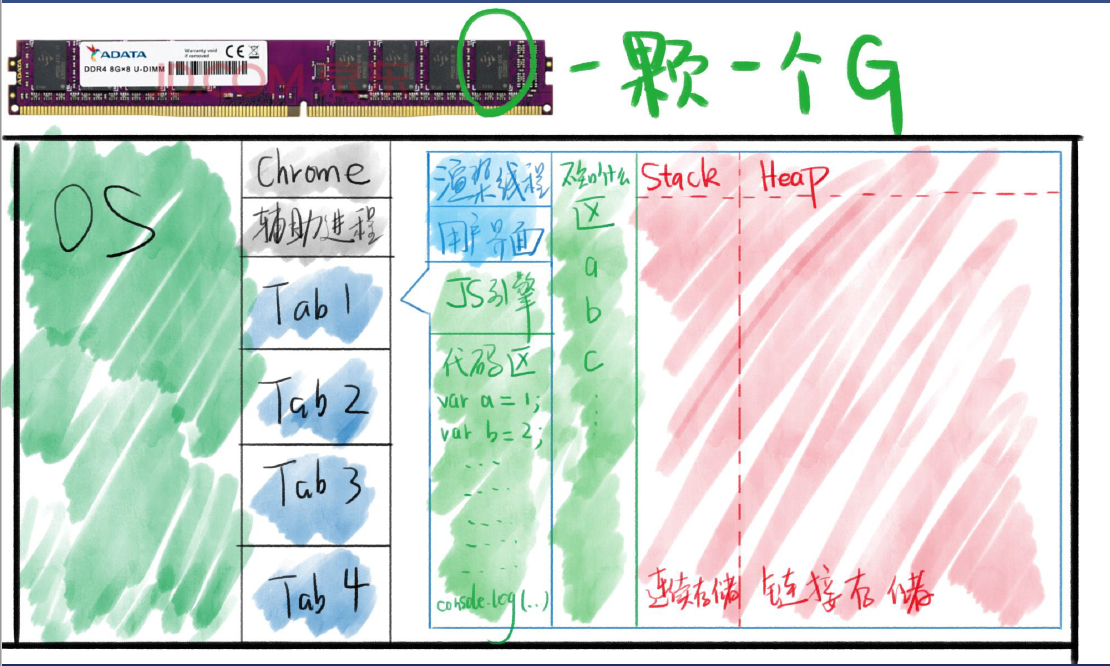 ADATA
Warranty void
if removed
CE
DDR4 8G×8 U-DIMM
JD.COM 京东
一颗一个G
OS
Chrome
辅助进程
Tab 1
Tab 2
Tab 3
Tab 4
渲染线程
用户界面
JS引擎
代码区
var a = 1;
var b = 2;
...
console.log(..)
不知什么
区
a
b
c
Stack
连续存储
Heap
链接存储